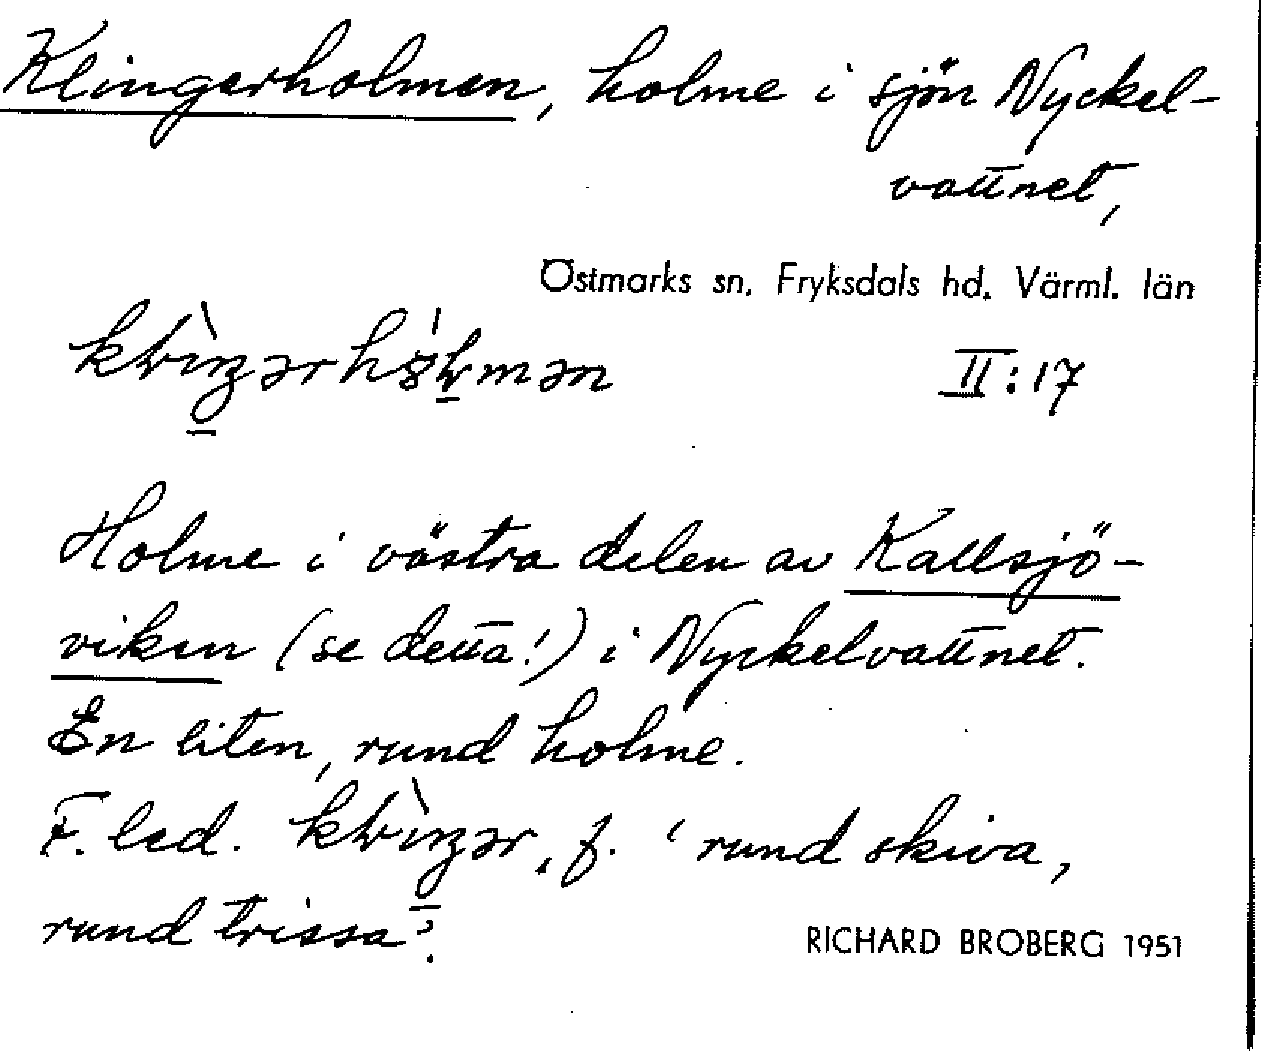 Klingerholmen, holme i sjön Nyckel-
vattnet,
Östmarks sn. Fryksdals hd. Värml. län
II:17
Holme i västra delen av Kallsjö-
viken (se detta!) i Nyckelvattnet.
En liten, rund holme.
F. led. f. 'rund skiva,
rund trissa'.
RICHARD BROBERG 1951